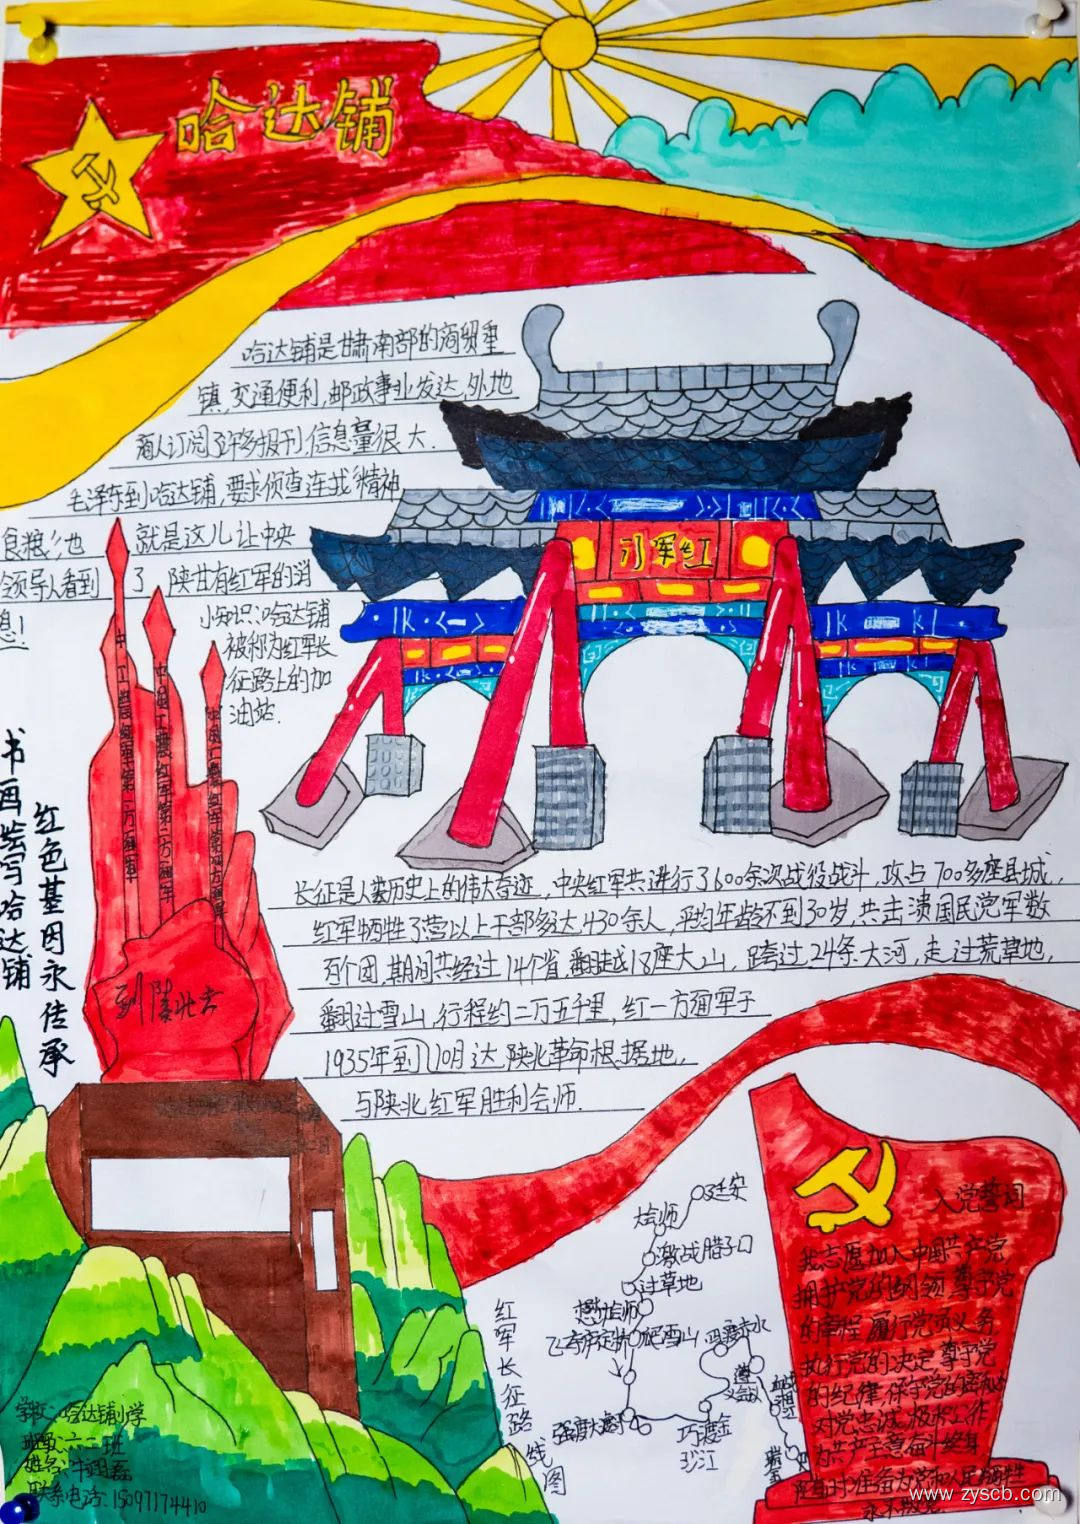 哈达铺
哈达铺是甘肃南部的商贸重
镇,交通便利,邮政事业发达,外地
商人订阅了许多报刊,信息量很大.
毛泽东到哈达铺,要求侦查连找"精神
食粮",也
就是这儿让中央
领导人看到
了,陕甘有红军的消
息!
小知识:哈达铺
被称为红军长
征路上的加
油站.
红军门
中国工农红军第一方面军
中国工农红军第二方面军
中国工农红军第四方面军
到陕北去
书画绘写哈达铺
红色基因永传承
长征是人类历史上的伟大奇迹,中央红军共进行了600余次战役战斗,攻占700多座县城,
红军牺牲了营以上干部多达430余人,平均年龄不到30岁,共击溃国民党军数
百个团,期间共经过14个省,翻越18座大山,跨过24条大河,走过荒草地,
翻过雪山,行程约二万五千里,红一方面军于
1935年到10月达陕北革命根据地,
与陕北红军胜利会师.
延安
会师
激战腊子口
过草地
懋功会师
飞夺泸定桥
爬雪山
四渡赤水
遵义会议
强渡大渡河
巧渡金
沙江
血战湘江
瑞金
红军长征路线图
入党誓词
我志愿加入中国共产党
拥护党的纲领,尊守党
的章程,履行党员义务
执行党的决定,尊守党
的纪律,保守党的秘密
对党忠诚,积极工作
为共产主意奋斗终身
随时准备为党和人民牺牲
永不叛党.
学校:哈达铺小学
班级:六二班
联系电话:15097174410
www.zyscb.com